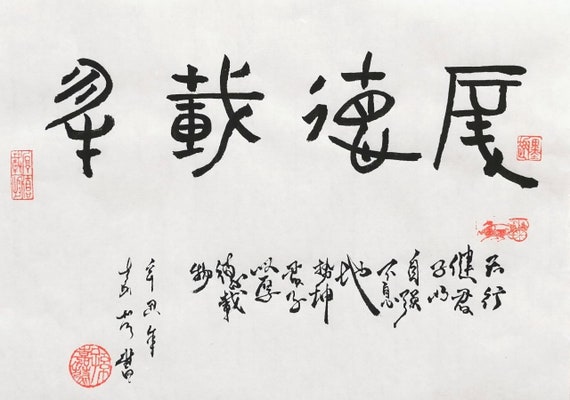 厚德載物
天行
健君
子以
自强
不息
地
势坤
君子
以厚
德載
物
辛丑年
書